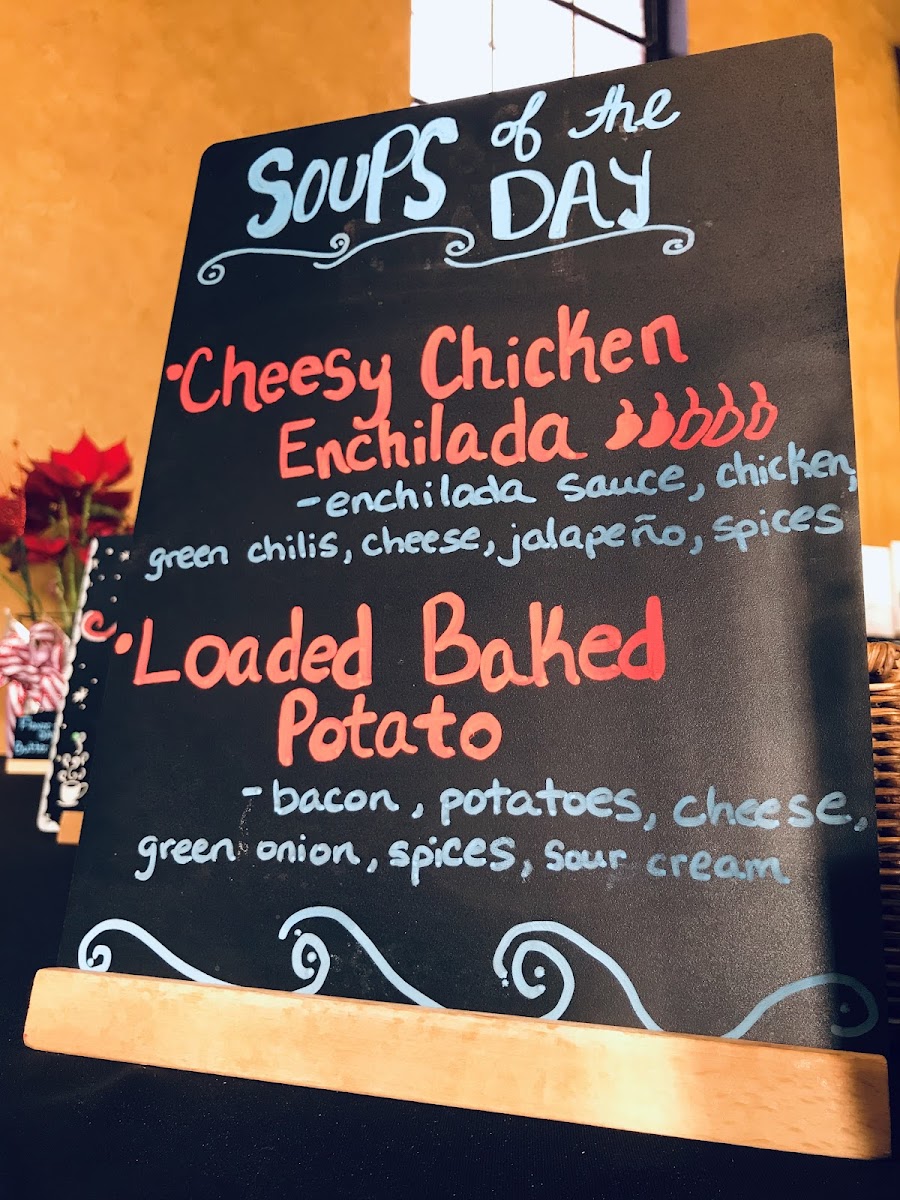 SOUPS of the
DAY
•Cheesy Chicken
Enchilada
-enchilada sauce, chicken,
green chilis, cheese, jalapeño, spices
•Loaded Baked
Potato
-bacon, potatoes, cheese,
green onion, spices, sour cream